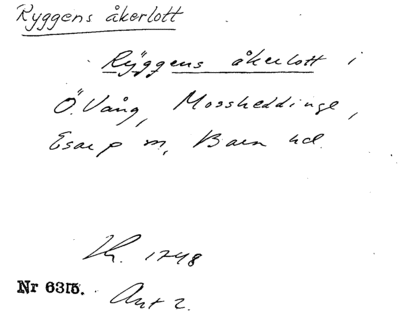 Ryggens åkerlott
Ryggens åkerlott i
Ö. Vång, Mossheddinge,
Esarp m, Bara hd.
Lk. 1748
Nr 6315.
Ant 2.